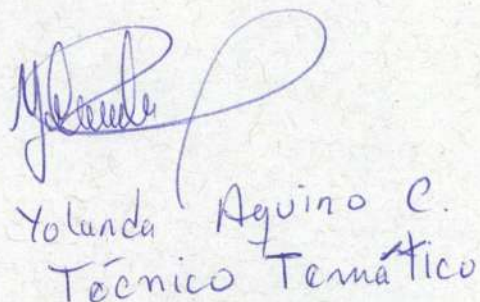 Yolanda
Yolanda Aquino C.
Técnico Temático